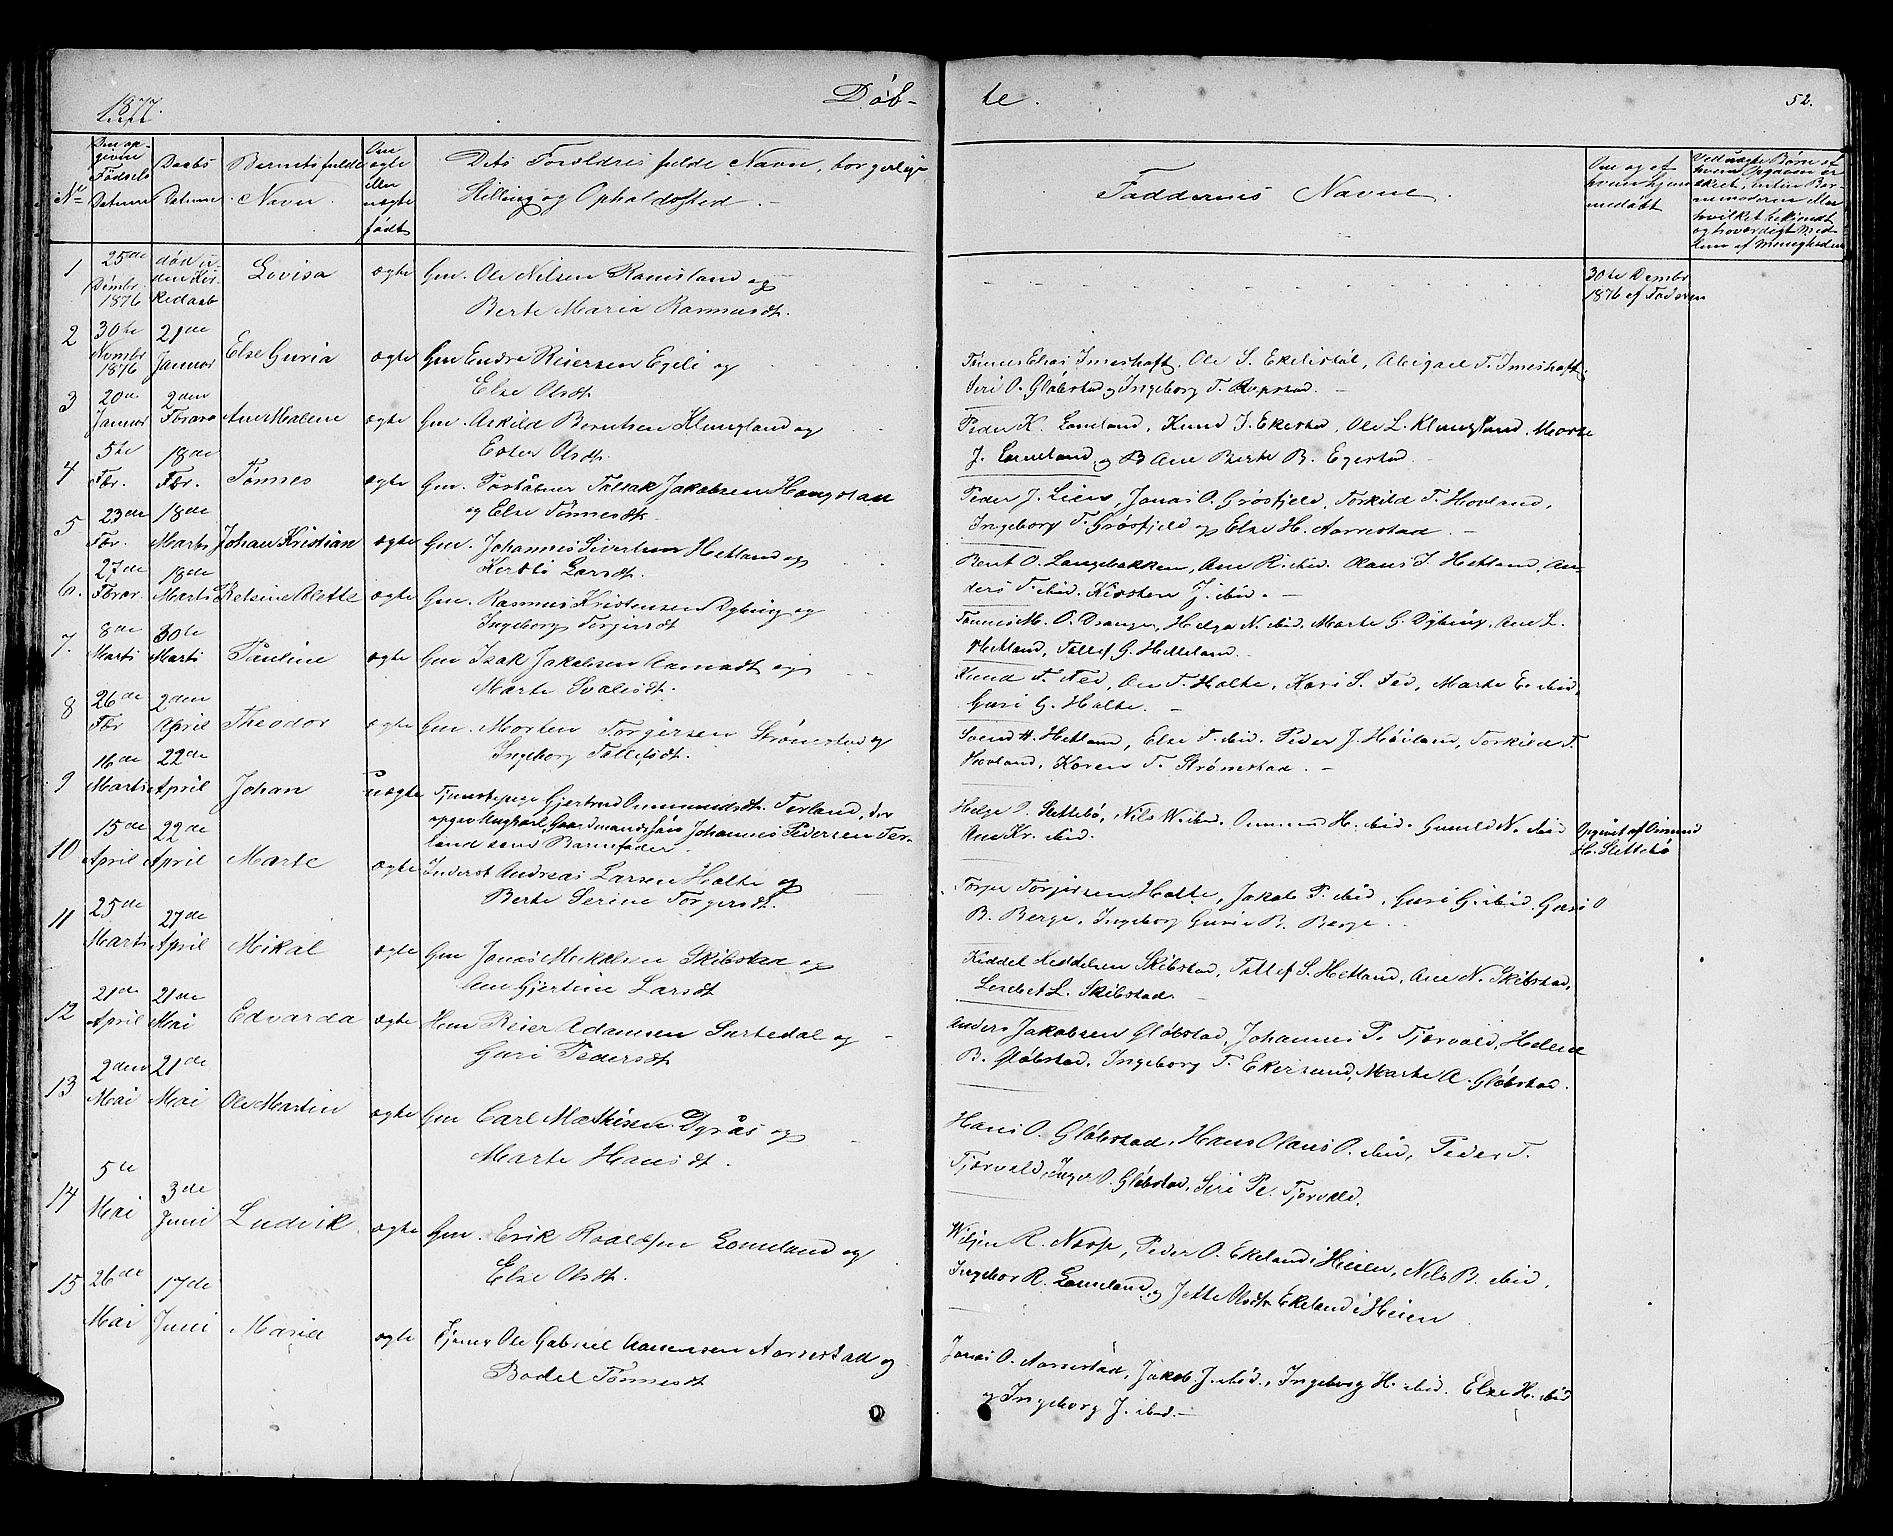 1877.
Døb-
te.
52.
Den op-
given
Fødsels
Datum
Daabs
Datum
Barnets fulde
Navn.
Om
ægte
eller
uægte
født
Dets Forældres fulde Navn, borgerlige
Stilling og Opholdssted.
Faddernes Navne.
Om og af
hvem hjem-
medøbt
Ved uægte Børn af
hvem Opgaven er
skeet, enten Bar-
nemoderen eller
hvilket bekjendt
og troværdigt Med-
lem af Menigheden
No
1
25de
Dcmbr
1876
død u-
den Kir-
kedaab
Lovisa
ægte
Gm. Ole Nilsen Ramsland og
Berte Maria Rasmusdt.
30te Dcmbr
1876 af Faderen
2
30te
Novmbr
1876
21de
Januar
Else Guria
ægte
Gm Endre Reiersen Egeli og
Else Olsdt.
Tønnes Elias Imeshaft, Ole S. Ekelistøl, Abigael T. Imeshaft,
Seri O. Gløbstad og Ingeborg T. Repstad.
3
20de
Januar
2den
Februar
Ane Malene
ægte
Gm. Askild Berntsen Klungland og
Ester Olsdt.
Peder K. Lomeland, Knud J. Ekestad, Ole L. Klungland, Marte
J. Lomeland og Ane Berte B. Egestad
4
5te
Febr.
18de
Febr.
Tønnes
ægte
Gm. Postaabner Tolsak Jakobsen Haugstad
og Else Tønnesdt.
Peder J. Lien, Jonas O. Grøsfjeld, Torkild T. Hovland,
Ingeborg T. Grøsfjeld og Else H. Aarrestad.
5
23de
Febr.
18de
Marts
Johan Kristian
ægte
Gm. Johannes Sivertsen Hetland og
Kirsti Larsdt.
Bent O. Langebakken, Ane R. ibid. Olaus I. Hetland, An-
ders T. ibid. Kirsten J. ibid.
6.
27de
Februar.
18de
Marts
Betsine Olette
ægte
Gm. Rasmus Kristensen Dybing og
Ingeborg Torjersdt
Tønnes M. O. Drange, Helga N. ibid, Marte G. Dybing, Ane L.
Hetland, Tollef G. Helleland.
7.
8de
Marts
30te
Marts
Pauline
ægte
Gm Isak Jakobsen og
Marte Svalesdt.
Knud T. Fed, Ane T. Holte, Kari S. Fed, Marte E. ibid,
Guri G. Holte.
8
26de
Febr
2den
April
Theodor
ægte
Gm. Morten Torgersen Strømstad og
Ingeborg Tollefsdt.
Svend H. Hetland, Else T. ibid. Peder J. Høiland, Torkild T.
Hovland, Karen T. Strømstad.
9
16de
Marts
22de
April
Johan
uægte
Tjenestepige Gjertrud Ommundsdt. Terland, der
opgav Ungkarl, Gaardmandssøn Johannes Pedersen Ter-
land som Barnefader.
Helge O. Slettebø, Nils W. ibid. Ommund H. ibid. Gunild N. ibid
Ane Kr. ibid.
Opgivet af Omund
H. Slettebø
10
15de
April
22de
April
Marte
ægte
Inderst Andreas Larsen Holte og
Berte Serine Torgersdt.
Torger Torjersen Holte, Jakob P. ibid, Guri G. ibid. Guri O
B. Berge, Ingeborg Guria B. Berge.
11
25de
Marts
27de
April
Mikal
ægte
Gm Jonas Mikkelsen Skibstad og
Ane Gjertine Larsdt
Kiddel Keddelsen Skibstad, Tollef S. Hetland, Ane N. Skibstad,
Lisebet L. Skibstad.
12
21de
April
21de
Mai
Edvarda
ægte
Hm Reier Adamsen Surtedal og
Guri Pedersdt
Anders Jakobsen Gløbstad, Johannes P. Tjørvold, Helene
B. Gløbstad, Ingeborg T. Ekersund, Marte A. Gløbstad.
13
2den
Mai
21de
Mai
Ole Martin
ægte
Gm Carl Mathisen Dyraas og
Marte Hansdt.
Hans O. Gløbstad, Hans Olaus O. ibid, Peder T.
Tjørvold, Inger O. Gløbstad, Siri Pe. Tjørvold.
14
5te
Mai
3de
Juni
Ludvik
ægte
Gm. Erik Roaldsen Lomeland og
Else Olsdt.
R. Nærp, Peder O. Ekeland i Heien, Nils B. ibid.
Ingebor R. Lomeland og Jette Olsdt Ekeland i Heien
15
26de
Mai
17de
Juni
Maria
ægte
Tjener Ole Gabriel Aanensen Aarrestad og
Bodel Tønnesdt
Jonas O. Aarrestad, Jakob J. ibid., Ingeborg H. ibid. Else H. ibid
og Ingeborg J. ibid.